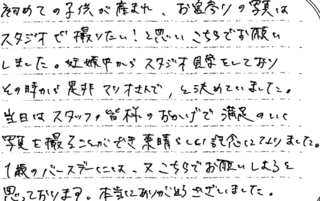 初めての子供が産まれ、お宮参りの写真は
スタジオで撮りたい!と思いこちらでお願い
しました。妊娠中からスタジオ見学をしており
その時から是非マリオさんで、と決めていました。
当日はスタッフ皆様のおかげで満足のいく
写真を撮ることができ素晴らしい記念になりました。
1歳のバースデーにも、又こちらでお願いしようと
思っております。本当にありがとうございました。